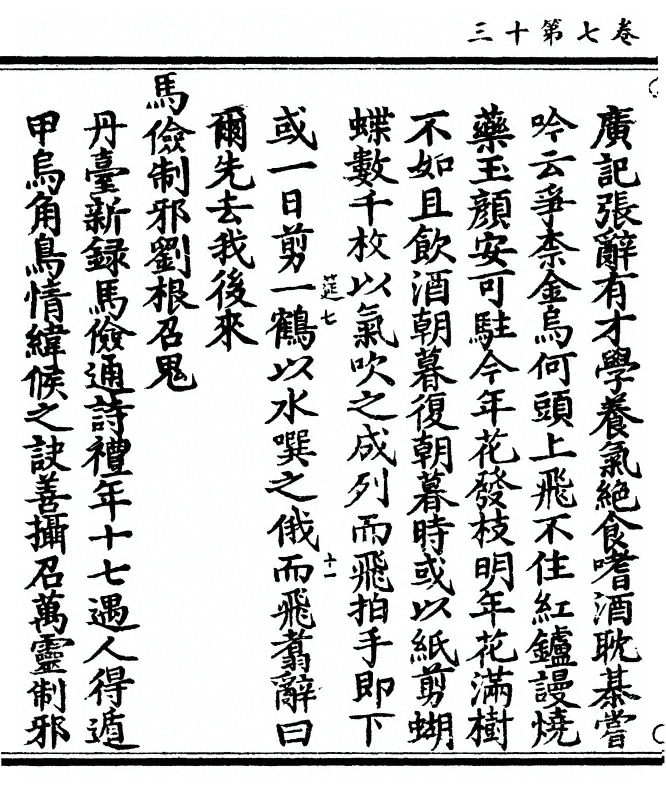 三十第七卷
廣記張辭有才學養氣絕食嗜酒耽棊嘗
吟云爭柰金烏何頭上飛不住紅鑪謾燒
藥玉顔安可駐今年花發枝明年花滿樹
不如且飲酒朝暮復朝暮時或以紙剪蝴
蝶數千枚以氣吹之成列而飛拍手即下
莚七
十一
或一日剪一鶴以水噀之俄而飛翥辭曰
爾先去我後來
馬儉制邪劉根召鬼
丹臺新録馬儉通詩禮年十七遇人得遁
甲烏角鳥情緯候之訣善攝召萬靈制邪